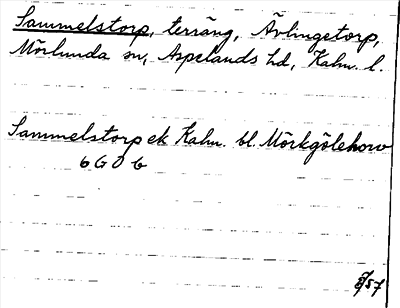 Sammelstorp, terräng, Ävlingetorp,
Mörlunda sn, Aspelands hd, Kalm. l.
Sammelstorp ek Kalm. bl. Mörkgölehorv
6 G 0 b